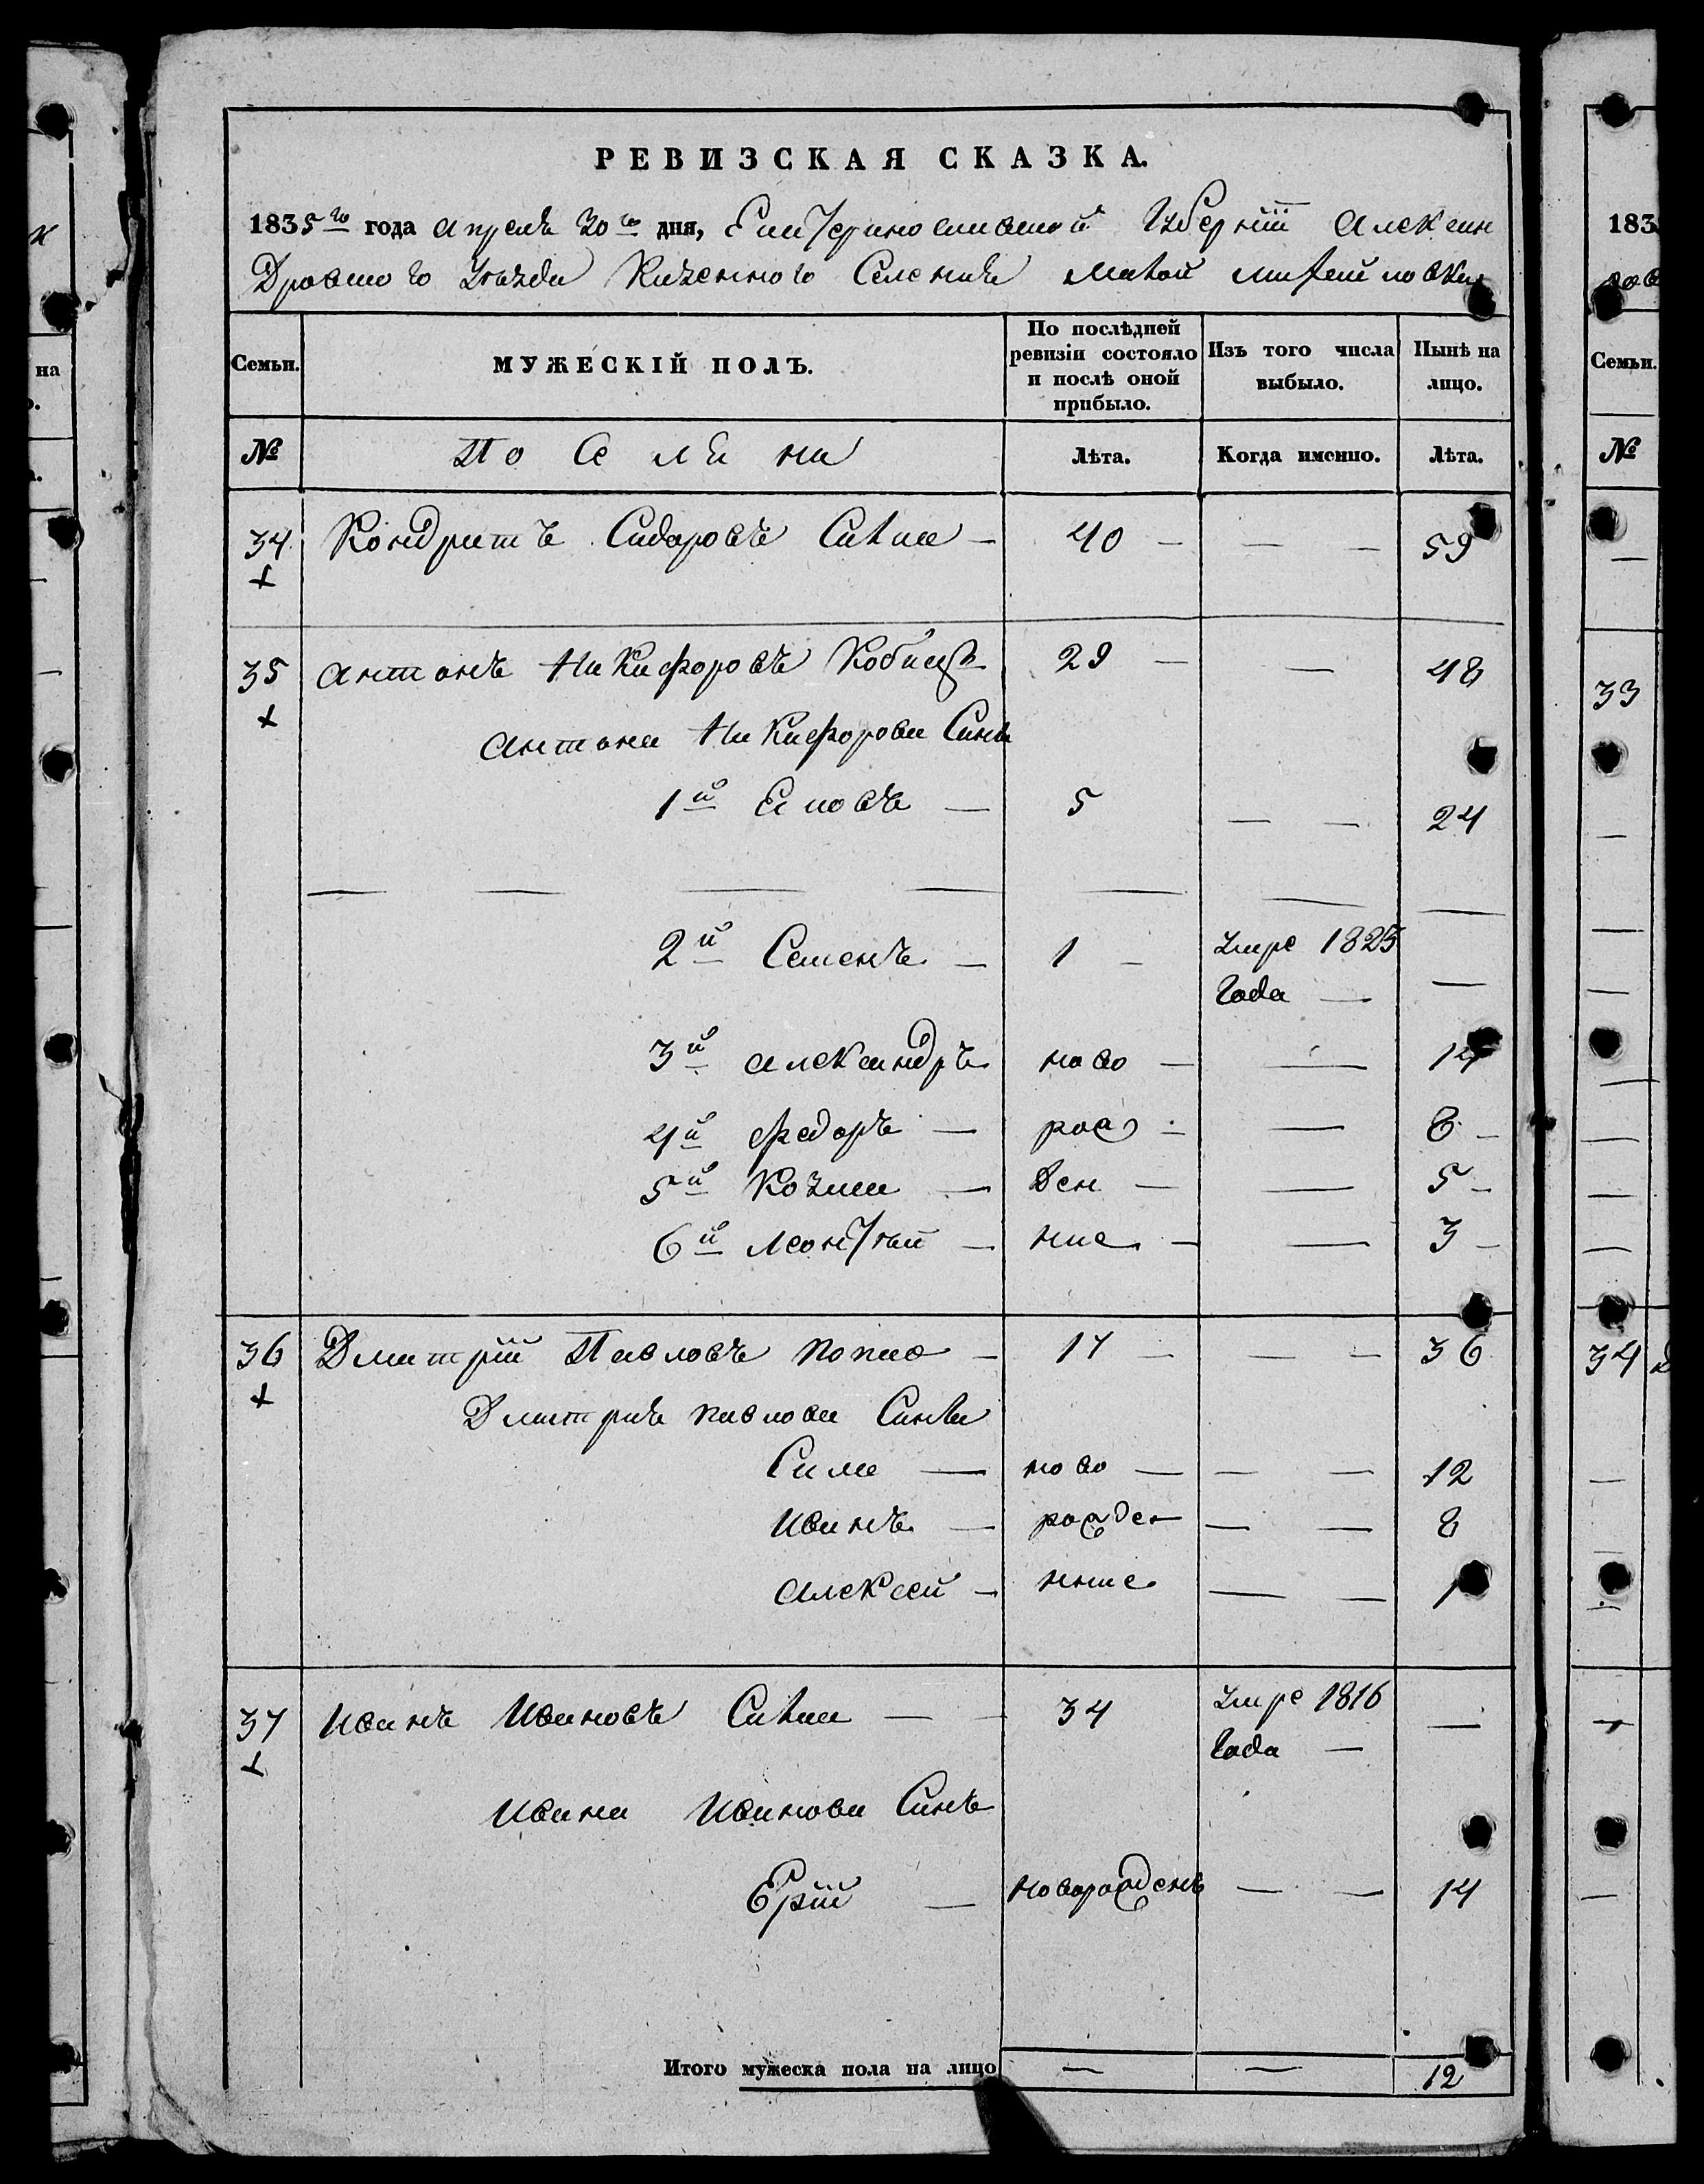 РЕВИЗСКАЯ СКАЗКА.
1835го года апреля 30го дня, Екатеринославской Губернiи Алексан
Дровского Уезда Казенного Селения малой михайловки
Семьи. МУЖЕСКІЙ ПОЛЪ. По послѣдней ревизіи состояло и послѣ оной прибыло. Изъ того числа выбыло. Нынѣ на лицо.
№ По Се ле на Лѣта. Когда именно. Лѣта.
34 Кондратъ Сидоровъ 40 — — — 59
35 Антонъ Никифоровъ 29 — — 48
Антона Никифорова Сины
1й 5 — — 24
2й Семенъ — 1 — умре 1825 —
года —
3й Александръ ново — — 14
4й Федоръ — рож — — 8 —
5й Козма — ден — — 5 —
6й Леонтий — ние — — 3 —
36 Дмитрiй Павловъ 17 — — — 36
Дмитрия павлова Сины
Сила — ново — — — 12
Иванъ — рожден — — 8
Алексей — ние — — 1
37 Иванъ Ивановъ — — 34 умре 1816 —
года —
Ивана Иванова Синъ
— новорожденъ — — 14
Итого мужеска пола на лицо — — 12
183
Семьи.
№
33
34
на